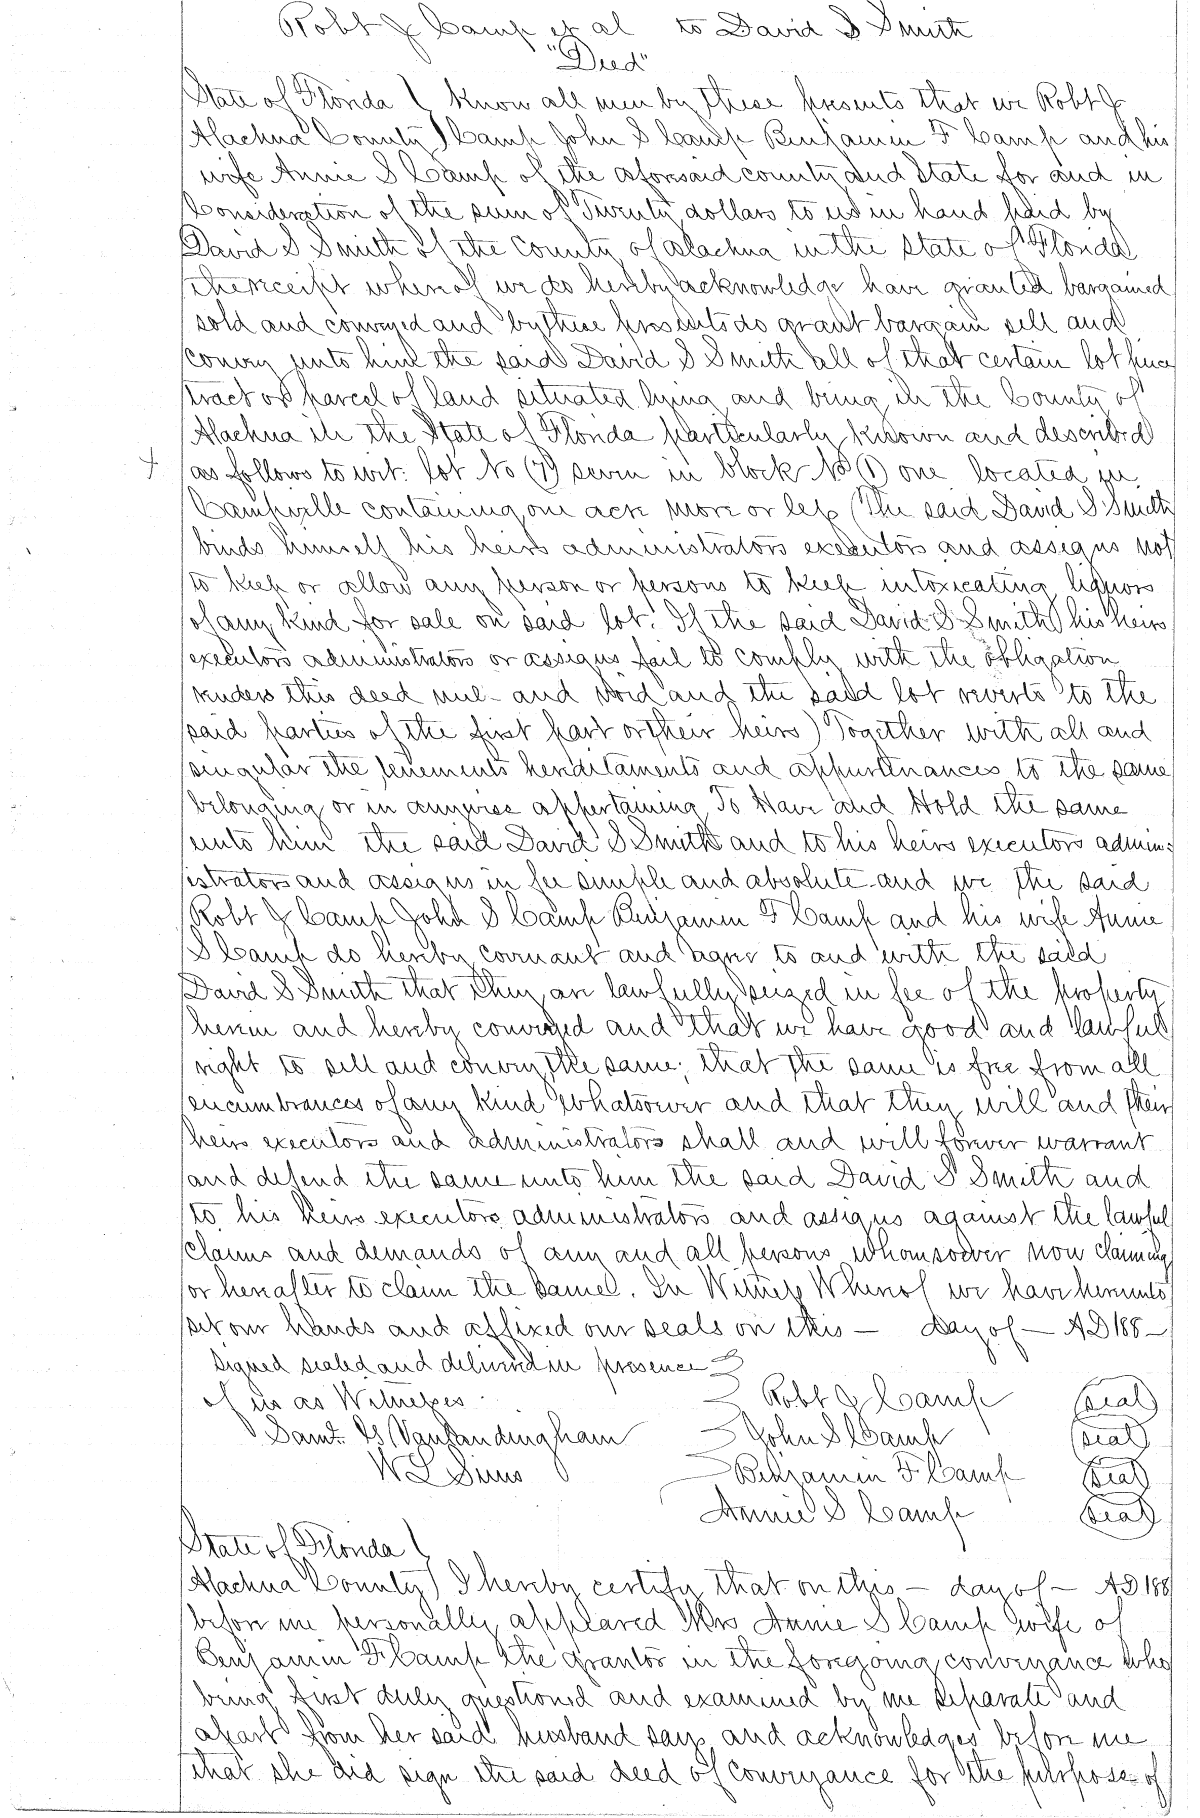 Robt J Camp et al to David S Smith
"Deed"
State of Florida } Know all men by these presents that we Robt J
Alachua County } Camp John S Camp Benjamin F Camp and his
wife Annie S Camp of the aforsaid county and State for and in
Consideration of the sum of Twenty dollars to us in hand paid by
David S Smith of the County of Alachua in the State of Florida
the receipt whereof we do hereby acknowledge have granted bargained
sold and conveyed and by these presents do grant bargain sell and
convey unto him the said David S Smith all of that certain lot piece
tract or parcel of land situated lying and being in the County of
Alachua in the State of Florida particularly known and described
+ as follows to wit: lot No (7) seven in block No (1) one located in
Campville containing one acre more or less (The said David S Smith
binds himself his heirs administrators executors and assigns not
to keep or allow any person or persons to keep intoxicating liquors
of any kind for sale on said lot. If the said David S Smith his heirs
executors administrators or assigns fail to comply with the obligation
renders this deed null and void and the said lot reverts to the
said parties of the first part or their heirs) Together with all and
singular the tenements hereditaments and appurtenances to the same
belonging or in anywise appertaining To Have and Hold the same
unto him the said David S Smith and to his heirs executors admin-
istrators and assigns in fee simple and absolute and we the said
Robt J Camp John S Camp Benjamin F Camp and his wife Annie
S Camp do hereby covenant and agree to and with the said
David S Smith that they are lawfully seized in fee of the property
herein and hereby conveyed and that we have good and lawful
right to sell and convey the same; that the same is free from all
encumbrances of any kind whatsoever and that they will and their
heirs executors and administrators shall and will forever warrant
and defend the same unto him the said David S Smith and
to his heirs executors administrators and assigns against the lawful
claims and demands of any and all persons whomsoever now claiming
or hereafter to claim the same. In Witness Whereof we have hereunto
set our hands and affixed our seals on this — day of — AD 188—
Signed sealed and delivered in presence }
of us as Witnesses } Robt J Camp (seal)
Saml. G Vanlandingham } John S Camp (seal)
W L Sims } Benjamin F Camp (seal)
Annie S Camp (seal)
State of Florida }
Alachua County } I hereby certify that on this — day of — AD 188
before me personally appeared Mrs Annie S Camp wife of
Benjamin F Camp the grantor in the foregoing conveyance who
being first duly questioned and examined by me separate and
apart from her said husband says and acknowledges before me
that she did sign the said deed of conveyance for the purpose of